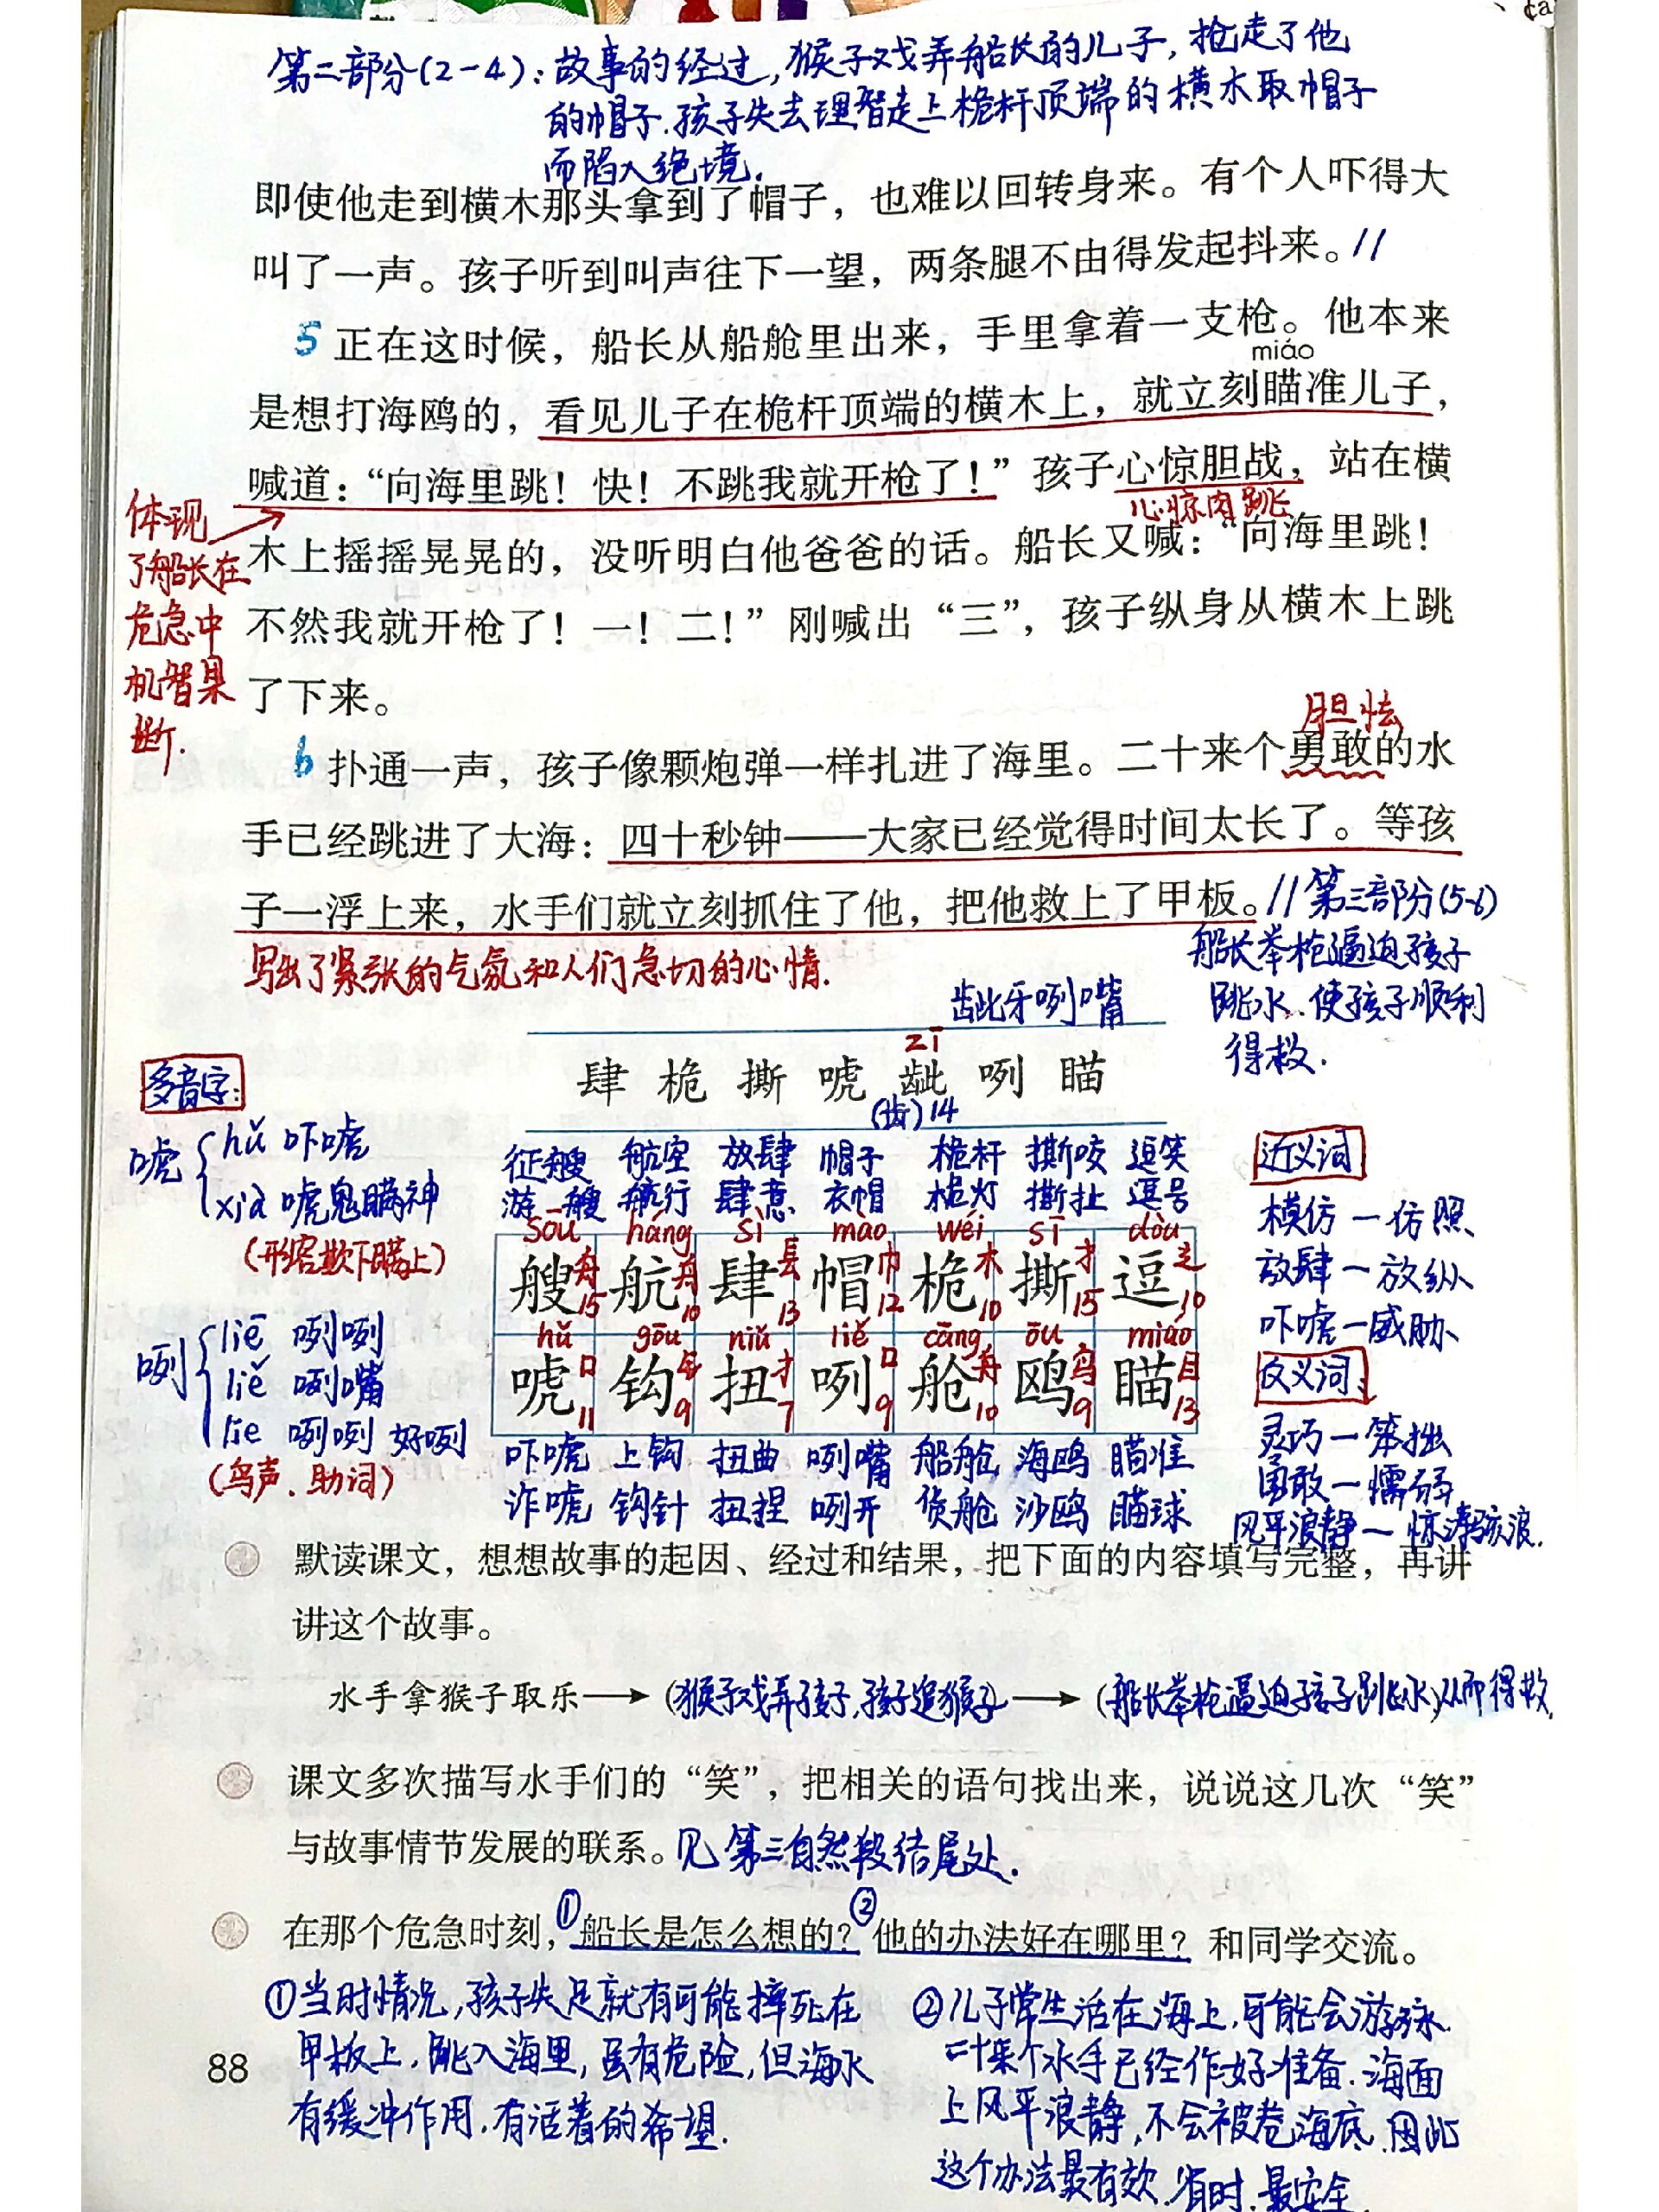 第二部分(2-4)：故事的经过，猴子戏弄船长的儿子，抢走了他
的帽子.孩子失去理智走上桅杆顶端的横木取帽子
而陷入绝境.
即使他走到横木那头拿到了帽子，也难以回转身来。有个人吓得大
叫了一声。孩子听到叫声往下一望，两条腿不由得发起抖来。//
5 正在这时候，船长从船舱里出来，手里拿着一支枪。他本来
miáo
是想打海鸥的，看见儿子在桅杆顶端的横木上，就立刻瞄准儿子，
喊道：“向海里跳！快！不跳我就开枪了！”孩子心惊胆战，站在横
心惊肉跳
木上摇摇晃晃的，没听明白他爸爸的话。船长又喊：“向海里跳！
不然我就开枪了！一！二！”刚喊出“三”，孩子纵身从横木上跳
了下来。
体现
了船长在
危急中
机智果
断.
胆怯
6 扑通一声，孩子像颗炮弹一样扎进了海里。二十来个勇敢的水
手已经跳进了大海：四十秒钟——大家已经觉得时间太长了。等孩
子一浮上来，水手们就立刻抓住了他，把他救上了甲板。// 第三部分(5-6)
船长举枪逼迫孩子
跳水.使孩子顺利
得救.
写出了紧张的气氛和人们急切的心情.
龇牙咧嘴
zī
肆 桅 撕 唬 龇 咧 瞄
(齿)14
多音字：
唬 hǔ 吓唬
xià 唬鬼瞒神
(形容欺下瞒上)
咧 liē 咧咧
liě 咧嘴
lie 咧咧 好咧
(鸟声.助词)
征艘 航空 放肆 帽子 桅杆 撕咬 逗笑
游艘 航行 肆意 衣帽 桅灯 撕扯 逗号
sōu háng sì mào wéi sī dòu
艘 舟 15 航 舟 10 肆 镸 13 帽 巾 12 桅 木 10 撕 扌 15 逗 辶 10
hǔ gōu niǔ liě cāng ōu miáo
唬 口 11 钩 钅 9 扭 扌 7 咧 口 9 舱 舟 10 鸥 鸟 9 瞄 目 13
吓唬 上钩 扭曲 咧嘴 船舱 海鸥 瞄准
诈唬 钩针 扭捏 咧开 货舱 沙鸥 瞄球
近义词
模仿－仿照
放肆－放纵
吓唬－威胁
反义词：
灵巧－笨拙
勇敢－懦弱
风平浪静－惊涛骇浪.
默读课文，想想故事的起因、经过和结果，把下面的内容填写完整，再讲
讲这个故事。
水手拿猴子取乐→(猴子戏弄孩子,孩子追猴子)→(船长举枪逼迫孩子跳水)从而得救.
课文多次描写水手们的“笑”，把相关的语句找出来，说说这几次“笑”
与故事情节发展的联系。见第三自然段结尾处.
在那个危急时刻，①船长是怎么想的？②他的办法好在哪里？和同学交流。
①当时情况，孩子失足就有可能摔死在
甲板上.跳入海里，虽有危险，但海水
有缓冲作用.有活着的希望.
②儿子常生活在海上.可能会游泳.
二十来个水手已经作好准备.海面
上风平浪静，不会被卷海底.因此
这个办法最有效.省时.最安全
88